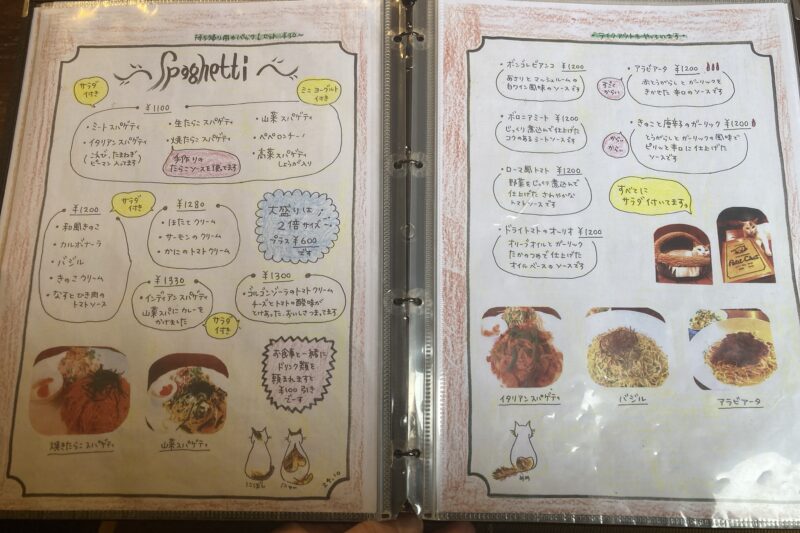 Spaghetti
サラダ
付き
ミニヨーグルト
付き
¥1100
・ミートスパゲティ
・イタリアンスパゲティ
(こえび、たまねぎ
ピーマン入ってます)
・生たらこスパゲティ
・焼たらこスパゲティ
手作りの
たらこソースを使ってます
・山菜スパゲティ
・ペペロンチーノ
・高菜スパゲティ
しょうが入り
¥1200
サラダ
付き
・和風きのこ
・カルボナーラ
・バジル
・きのこクリーム
・なすとひき肉の
トマトソース
¥1280
・ほたてクリーム
・サーモンのクリーム
・かにのトマトクリーム
大盛りは
2倍サイズ
プラス¥600
です
¥1330
・インディアンスパゲティ
山菜スパにカレーを
かけました
サラダ
付き
¥1300
・ゴルゴンゾーラのトマトクリーム
チーズとトマトの酸味が
とけあった、おいしさつまってます
お食事と一緒に
ドリンク類を
頼まれますと
¥100引き
です
焼きたらこスパゲティ
山菜スパゲティ
24.10
・ボンゴレビアンコ ¥1200
あさりとマッシュルームの
白ワイン風味のソースです
・ボロニアミート ¥1200
じっくり煮込んで仕上げた
コクのあるミートソースです
・ローマ風トマト ¥1200
野菜をじっくり煮込んで
仕上げた さわやかな
トマトソースです
・ドライトマトのオーリオ ¥1200
オリーブオイルとガーリック
たかのつめで仕上げた
オイルベースのソースです
・アラビアータ ¥1200
すごく
からい
赤とうがらしとガーリックを
きかせた辛口のソースです
・きのこと唐辛子のガーリック ¥1200
からーい
とうがらしとガーリックの風味で
ピリッと辛口に仕上げた
ソースです
すべてに
サラダ付いてます
Petit Chat
イタリアンスパゲティ
バジル
アラビアータ